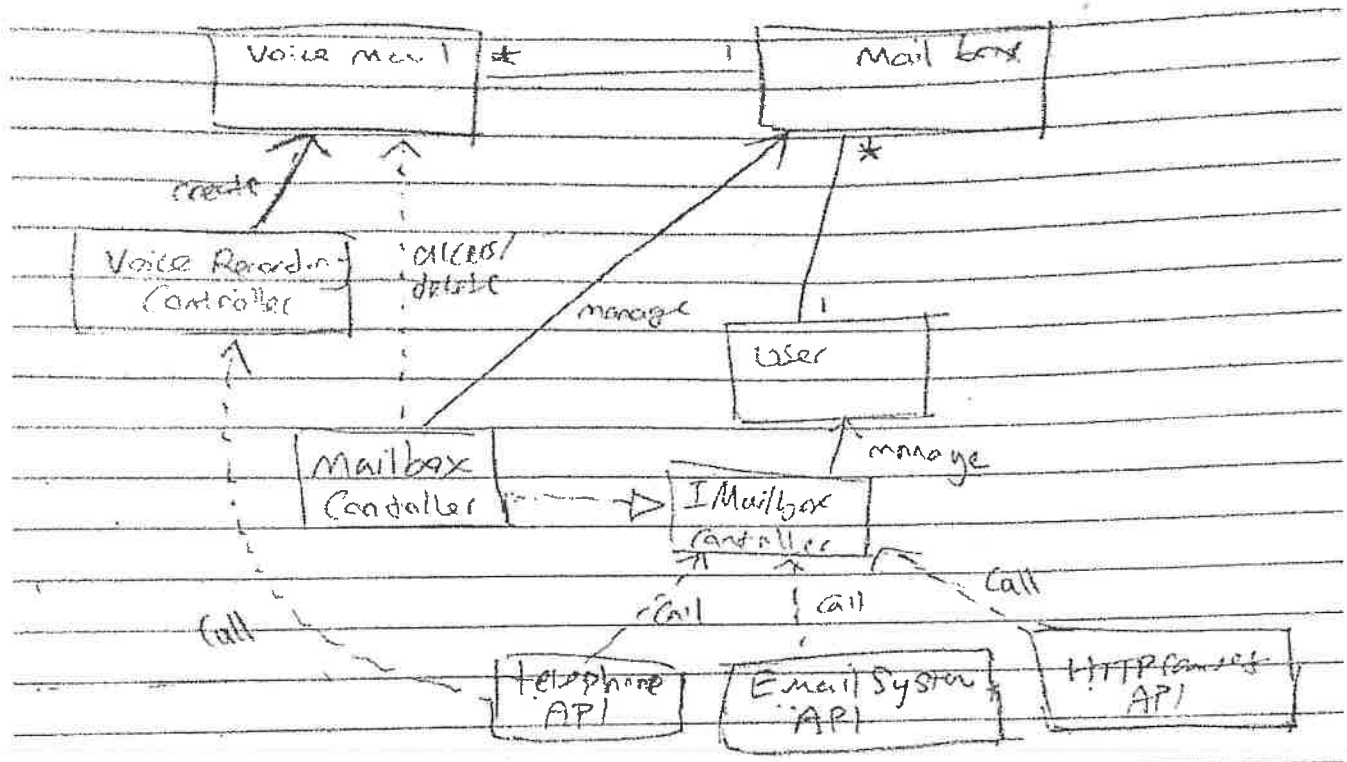 Voice Mail * 1 Mail box
*
create
Voice Recording
Controller
access/
delete
manage
1
User
manage
Mailbox
Controller
IMailbox
Controller
Call
Call
Call
Call
telephone
API
Email System
API
HTTP
API